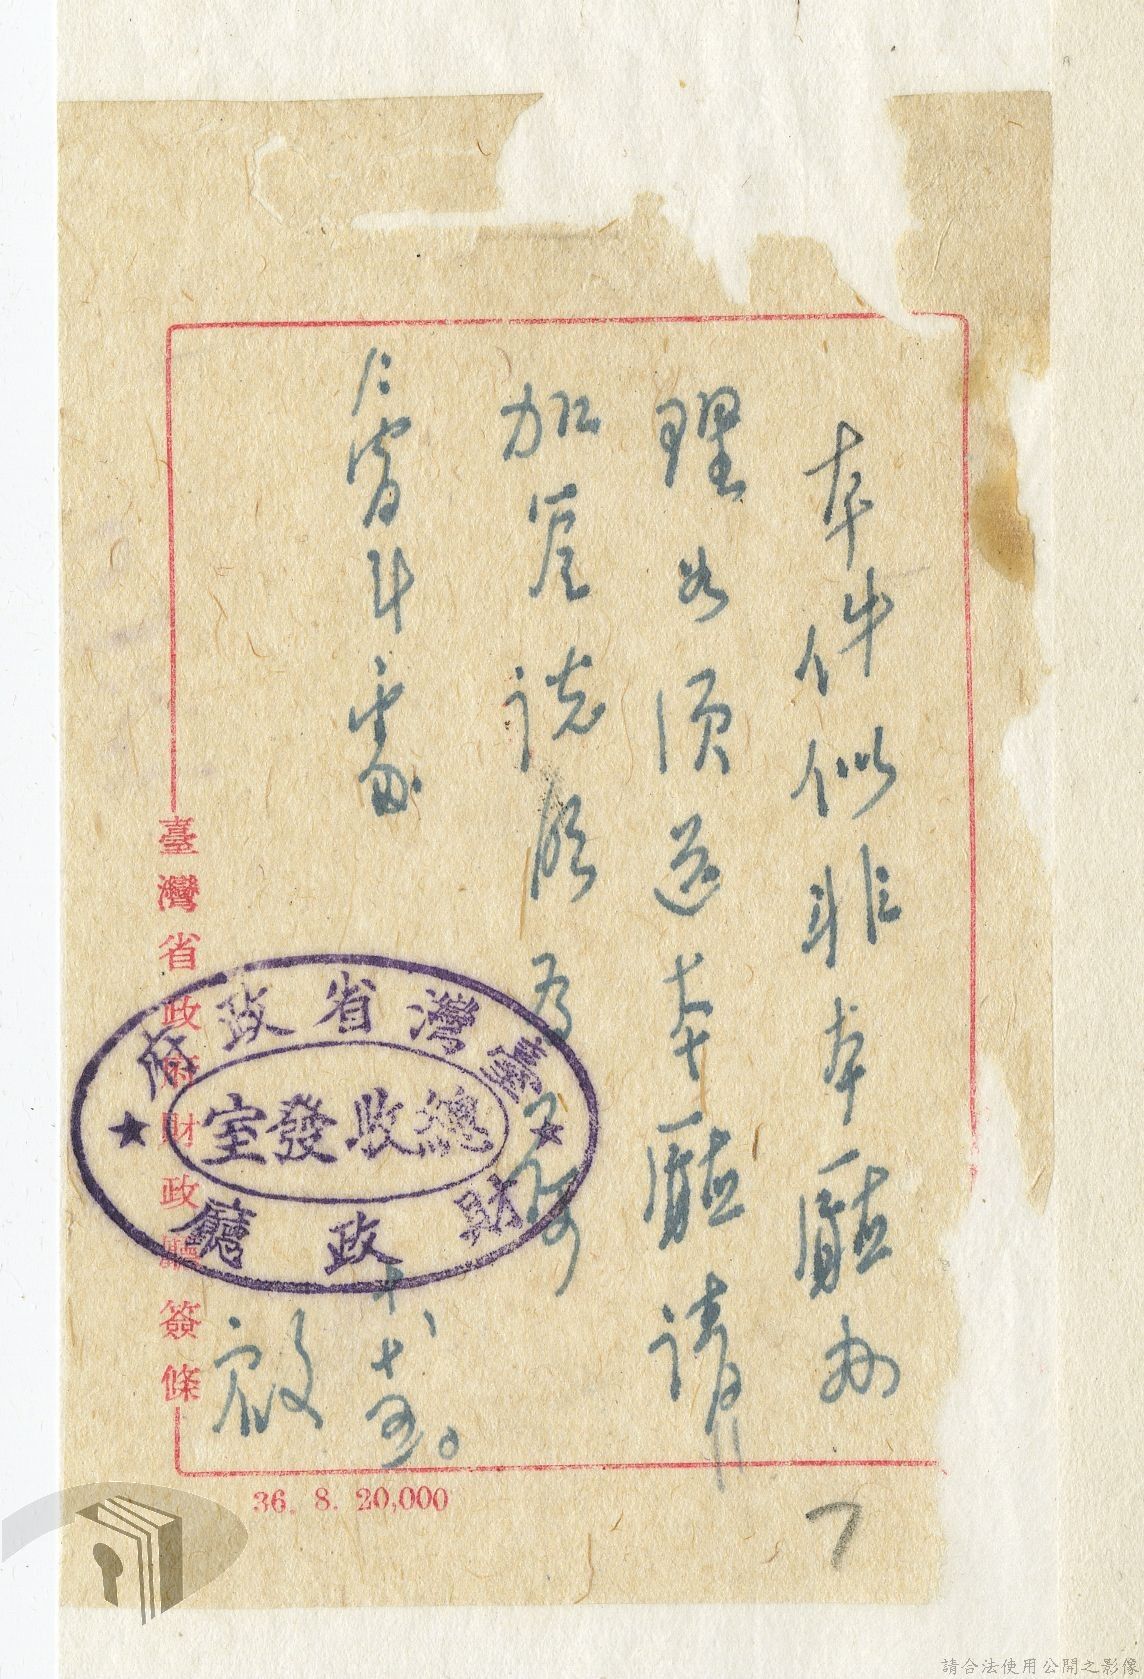 本件似非本廳办
理如須送本廳請
加註說明為荷
秘書處
臺灣省政府財政廳簽條
臺灣省政府
總收發室
財政廳
36. 8. 20,000
7
請合法使用公開之影像